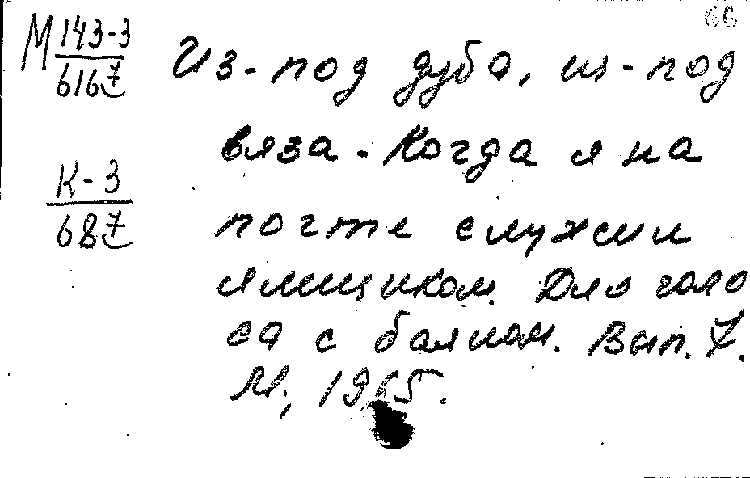 66
М 143-3
6167
Из-под дуба, из-под
вяза. Когда я на
К-3
687
почте служил
ямщиком. Для голо
са с баяном. Вып. 7.
М., 1965.